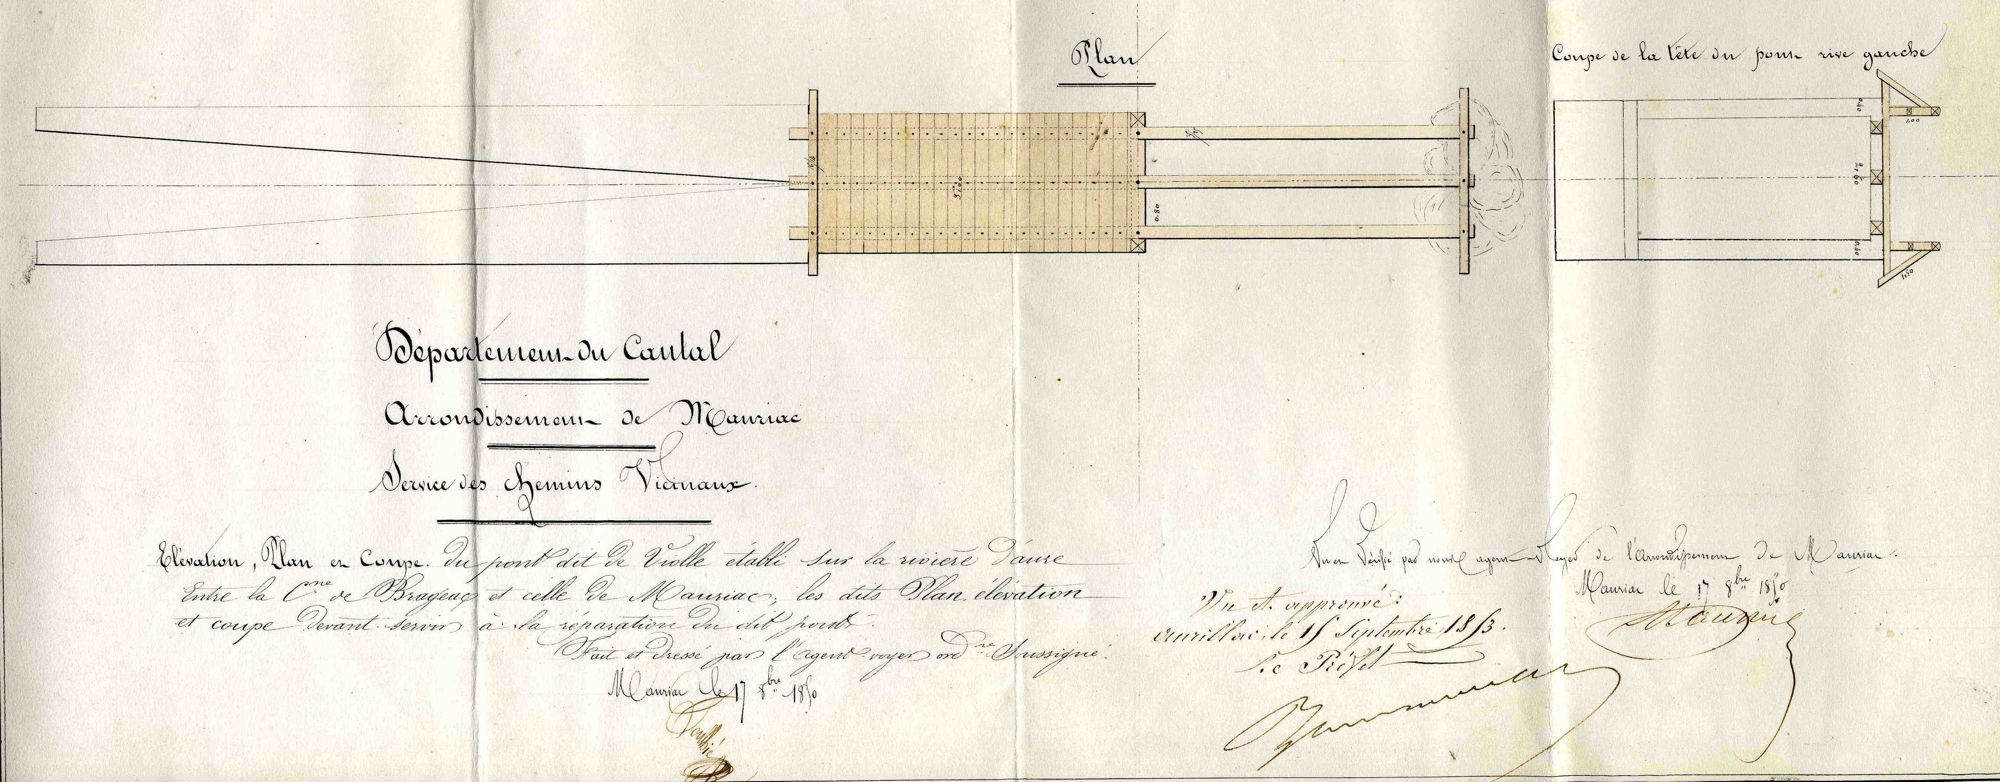 Plan
Coupe de la tête du pont rive gauche
0.80
2.60
1.00
Département du Cantal
Arrondissement de Mauriac
Service des chemins Vicinaux.
Elévation, Plan et Coupe. Du pont dit de Violle établi sur la rivière d'auze
Entre la Cne de Brageac et celle de Mauriac; les dits Plan, élévation
et coupe devant servir à la réparation du dit pont.
Fait et dressé par l'agent voyer ordre Soussigné.
Mauriac le 17 8bre 1850
Vu et approuvé:
aurillac, le 15 Septembre 1853.
Le Préfet
Vu et Vérifié par nous agent-Voyer de l'arrondissement de Mauriac.
Mauriac le 17 8bre 1850